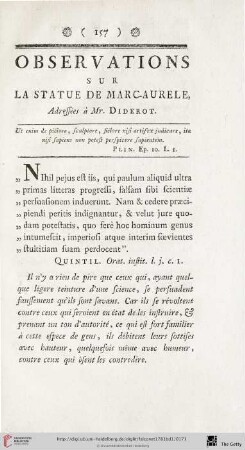 ( 157 )
OBSERVATIONS
SUR
LA STATUE DE MARC-AURELE,
Adressées à Mr. DIDEROT.
Ut enim de pictore, sculptore, fictore nisi artifex judicare, ita
nisi sapiens non potest perspicere sapientem.
PLIN. Ep. 10. l. 1.
„ NIhil pejus est iis, qui paulum aliquid ultra
„ primas litteras progressi, falsam sibi scientiæ
„ persuasionem induerunt. Nam & cedere præci-
„ piendi peritis indignantur, & velut jure quo-
„ dam potestatis, quo ferè hoc hominum genus
„ intumescit, imperiosi atque interim sævientes
„ stultitiam suam perdocent”.
QUINTIL. Orat. instit. l. j. c. 1.
Il n'y a rien de pire que ceux qui, ayant quel-
que légere teinture d'une science, se persuadent
faussement qu'ils sont savans. Car ils se révoltent
contre ceux qui seroient en état de les instruire, &
prenant un ton d'autorité, ce qui est fort familier
à cette espece de gens, ils débitent leurs sottises
avec hauteur, quelquefois même avec humeur,
contre ceux qui osent les contredire.
The Getty